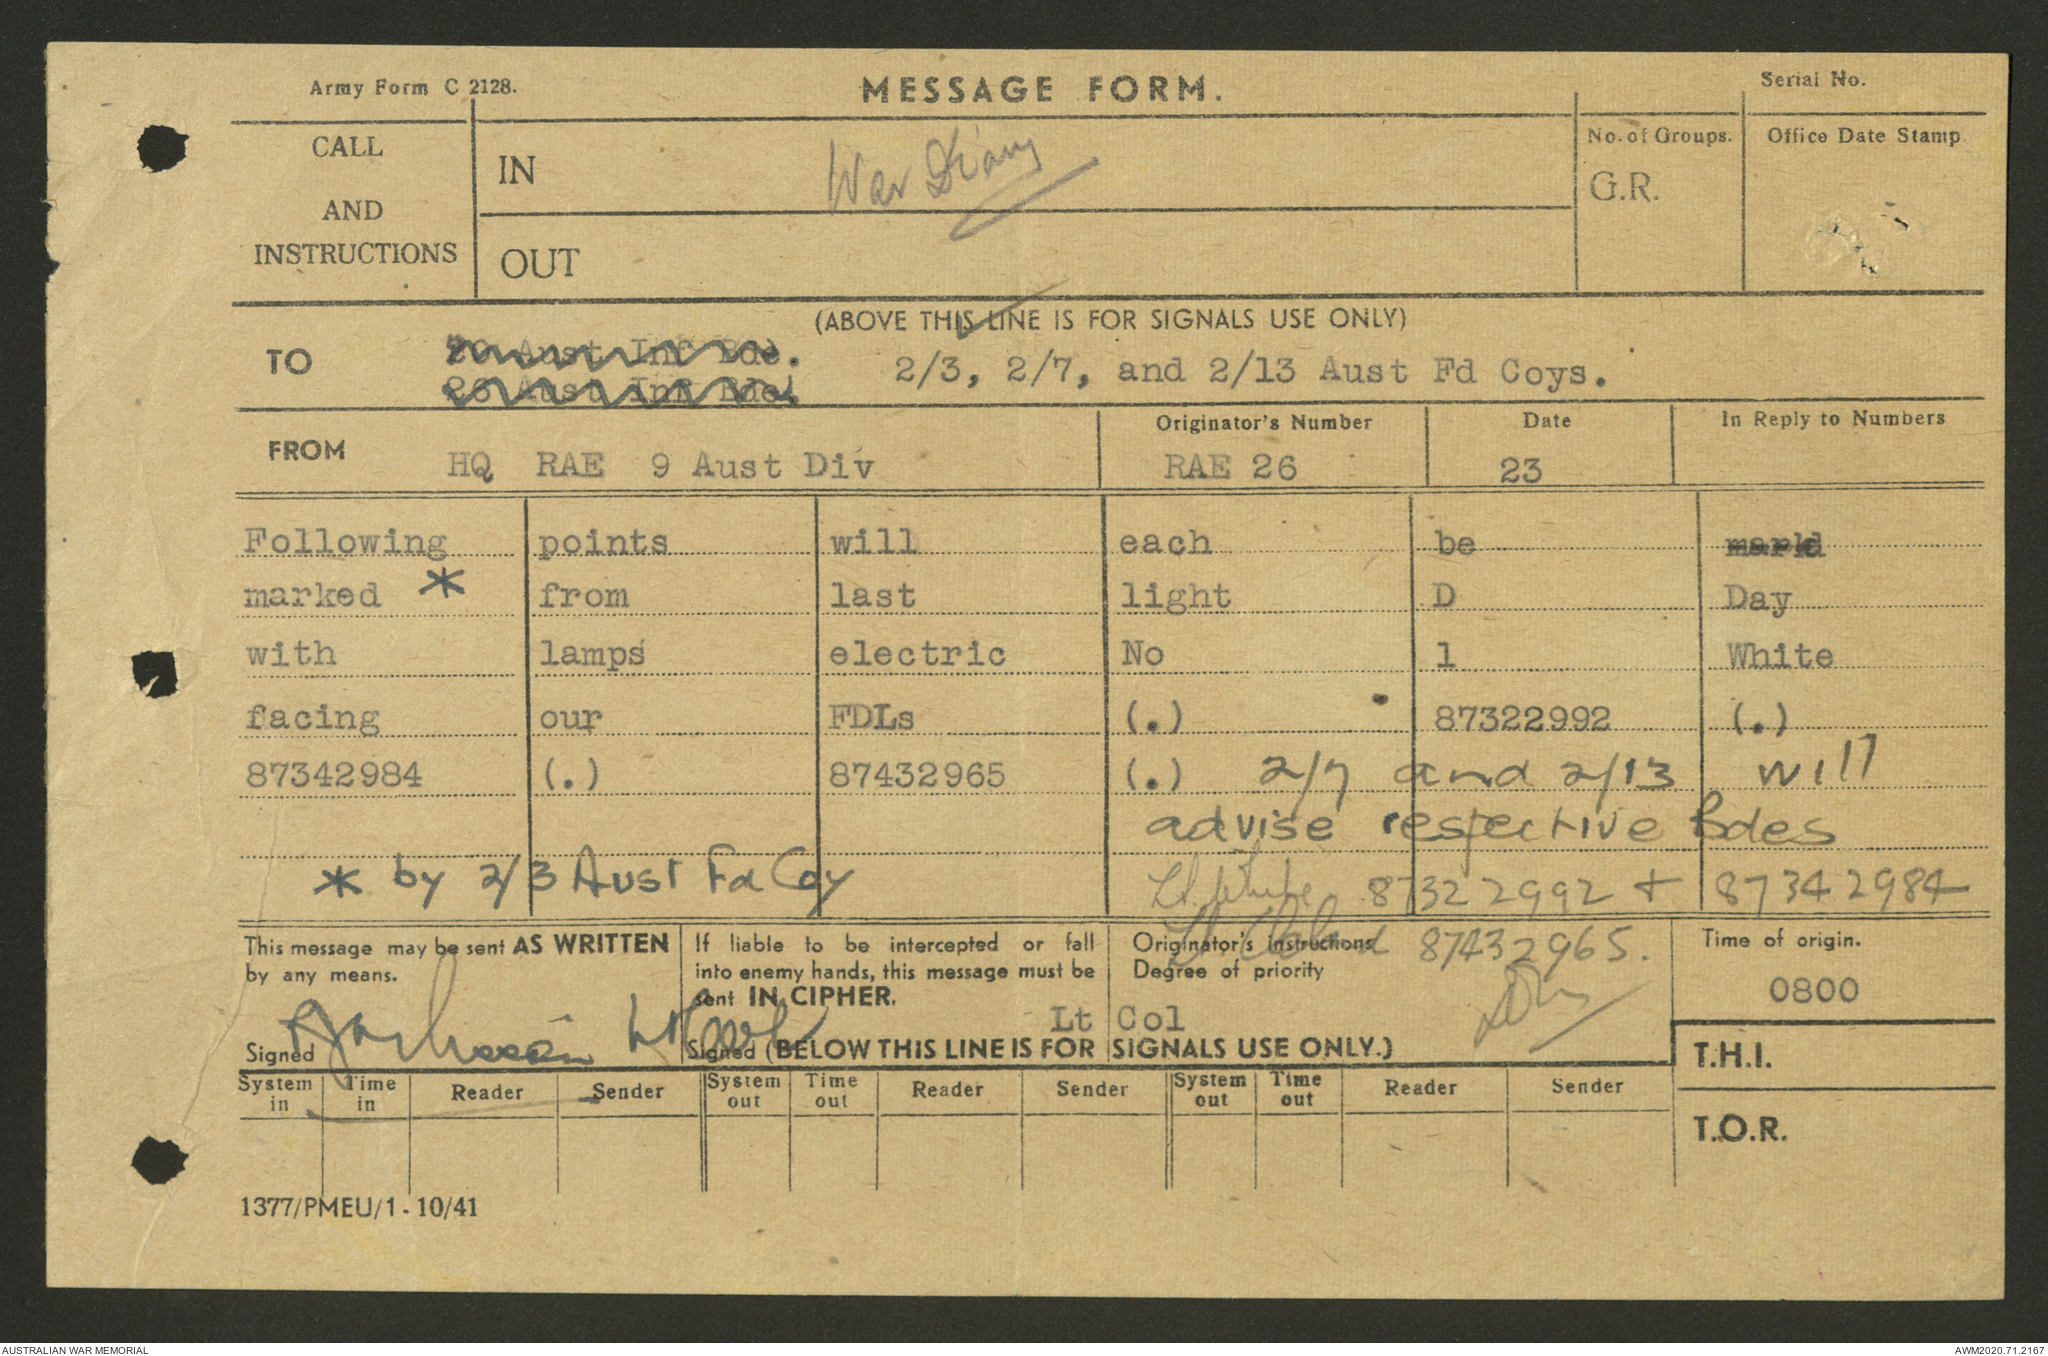 Army Form C 2128.
MESSAGE FORM.
Serial No.
CALL
AND
INSTRUCTIONS
IN
War Diary
OUT
No. of Groups.
G.R.
Office Date Stamp
(ABOVE THIS LINE IS FOR SIGNALS USE ONLY)
TO
20 Aust Inf Bde.
26 Aust Inf Bde.
2/3, 2/7, and 2/13 Aust Fd Coys.
FROM
HQ RAE 9 Aust Div
Originator's Number
RAE 26
Date
23
In Reply to Numbers
Following points will each be markd
marked * from last light D Day
with lamps electric No 1 White
facing our FDLs (.) 87322992 (.)
87342984 (.) 87432965 (.) 2/7 and 2/13 will
advise respective Bdes
* by 2/3 Aust Fd Coy
Lt. White 87322992 + 87342984
Lt 87432965.
This message may be sent AS WRITTEN
by any means.
Signed
If liable to be intercepted or fall
into enemy hands, this message must be
sent IN CIPHER.
Lt Col
Signed (BELOW THIS LINE IS FOR SIGNALS USE ONLY.)
Originator's instructions
Degree of priority
Time of origin.
0800
T.H.I.
T.O.R.
System in
Time in
Reader
Sender
System out
Time out
Reader
Sender
System out
Time out
Reader
Sender
1377/PMEU/1 - 10/41
AUSTRALIAN WAR MEMORIAL
AWM2020.71.2167